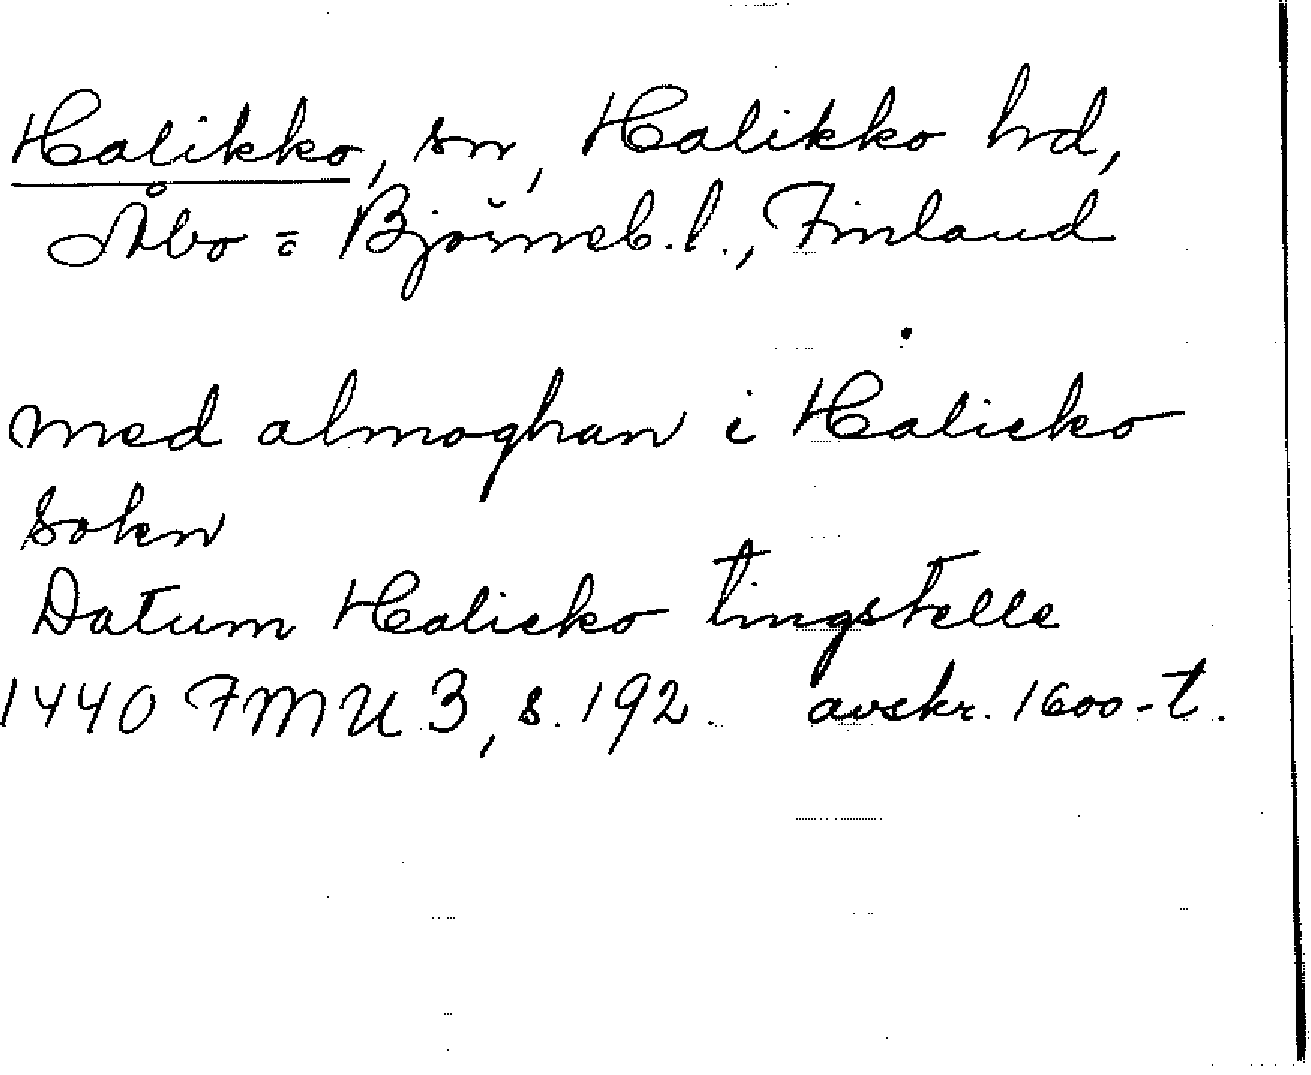 Halikko, sn, Halikko hd,
Åbo = Björneb. l., Finland
med almoghan i Halicko
sokn
Datum Halicko tingstelle
1440 FMU 3, s. 192. avskr. 1600-t.